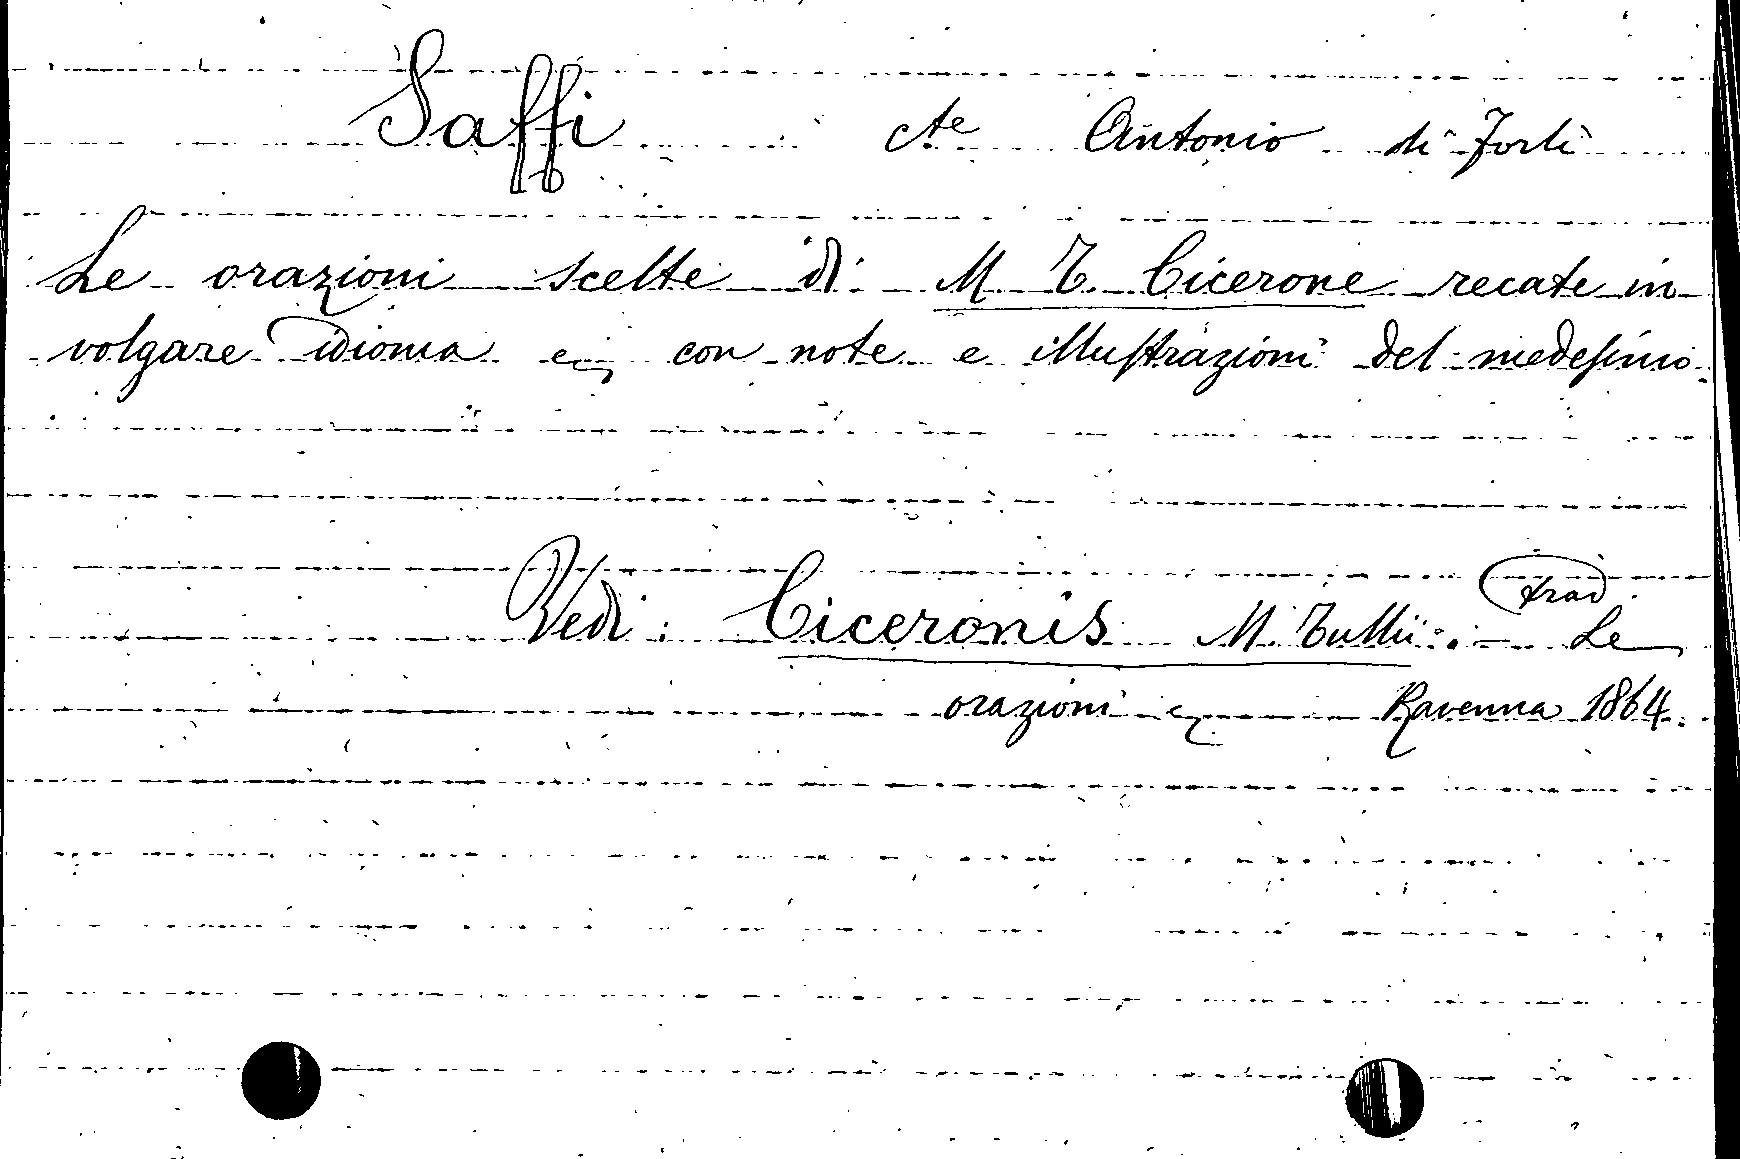 Saffi cte Antonio di Forlì
Le orazioni scelte di M T. Cicerone recate in
volgare idioma e con note e illustrazioni del medesimo.
Vedi: Ciceronis M. Tullii: — Le
trad.
orazioni Ravenna 1864.